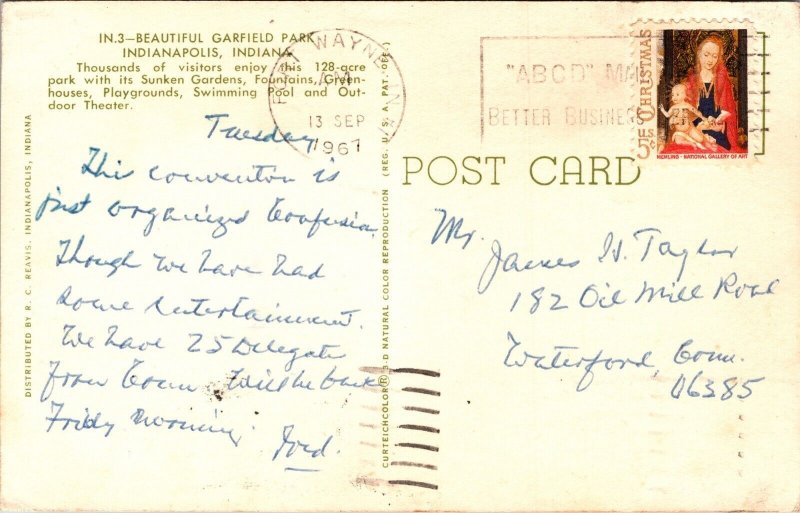 IN.3—BEAUTIFUL GARFIELD PARK
INDIANAPOLIS, INDIANA
Thousands of visitors enjoy this 128-acre
park with its Sunken Gardens, Fountains, Green-
houses, Playgrounds, Swimming Pool and Out-
door Theater.
Tuesday
This convention is
just organized Confusion.
Though we have had
some entertainment.
We have 25 Delegate
from Conn Will be back
Friday morning
DISTRIBUTED BY R. C. REAVIS, INDIANAPOLIS, INDIANA
CURTEICHCOLOR® 3-D NATURAL COLOR REPRODUCTION (REG. U. S. A. PAT. OFF.)
FORT WAYNE, IN
AM
13 SEP
1967
"ABCD" MA
BETTER BUSINESS
CHRISTMAS
U.S.
5c
MEMLING · NATIONAL GALLERY OF ART
POST CARD
Mr. James H. Taylor
182 Oil Mill Road
Waterford, Conn.
06385